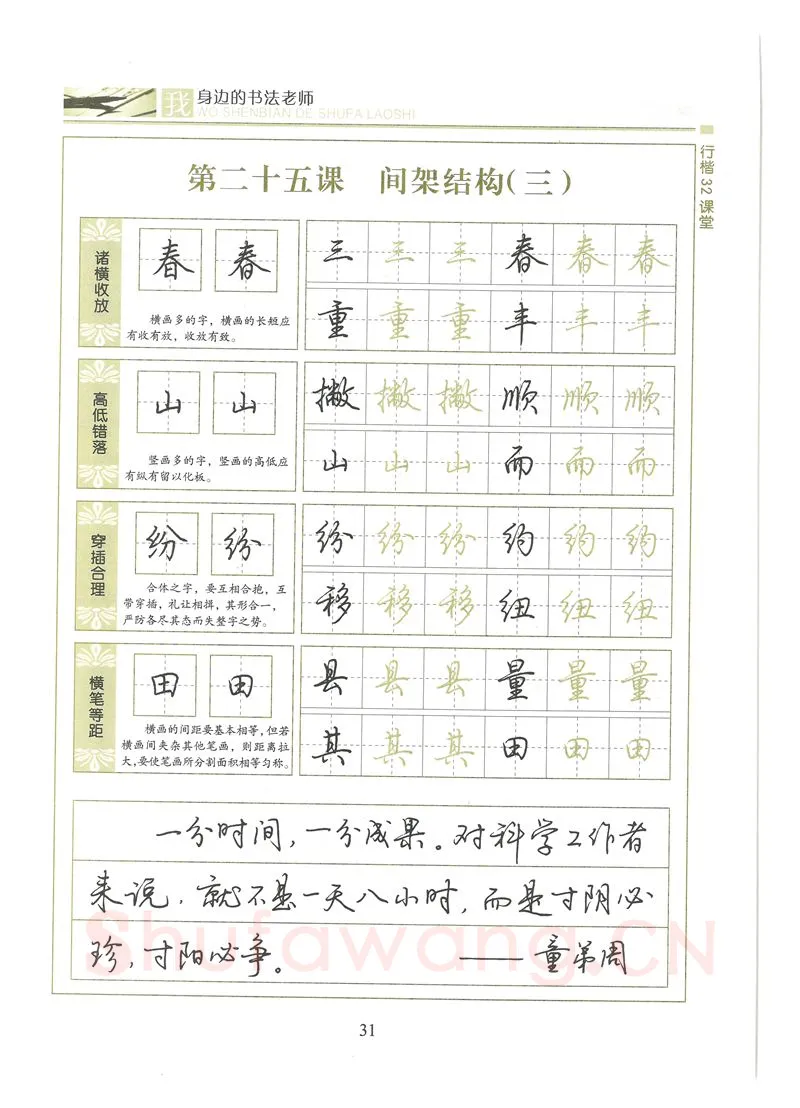 我 身边的书法老师
WO SHENBIAN DE SHUFA LAOSHI
行楷32课堂
第二十五课 间架结构(三)
诸横收放
春 春
横画多的字，横画的长短应
有收有放，收放有致。
三 三 三 春 春 春
重 重 重 丰 丰 丰
高低错落
山 山
竖画多的字，竖画的高低应
有纵有留以化板。
撇 撇 撇 顺 顺 顺
山 山 山 而 而 而
穿插合理
纷 纷
合体之字，要互相合抱，互
带穿插，礼让相揖，其形合一，
严防各尽其态而失整字之势。
纷 纷 纷 约 约 约
移 移 移 纽 纽 纽
横笔等距
田 田
横画的间距要基本相等，但若
横画间夹杂其他笔画，则距离拉
大，要使笔画所分割面积相等匀称。
县 县 县 量 量 量
其 其 其 田 田 田
一分时间，一分成果。对科学工作者
来说，就不是一天八小时，而是寸阴必
珍，寸阳必争。 ——童第周
Shufawang.CN
31